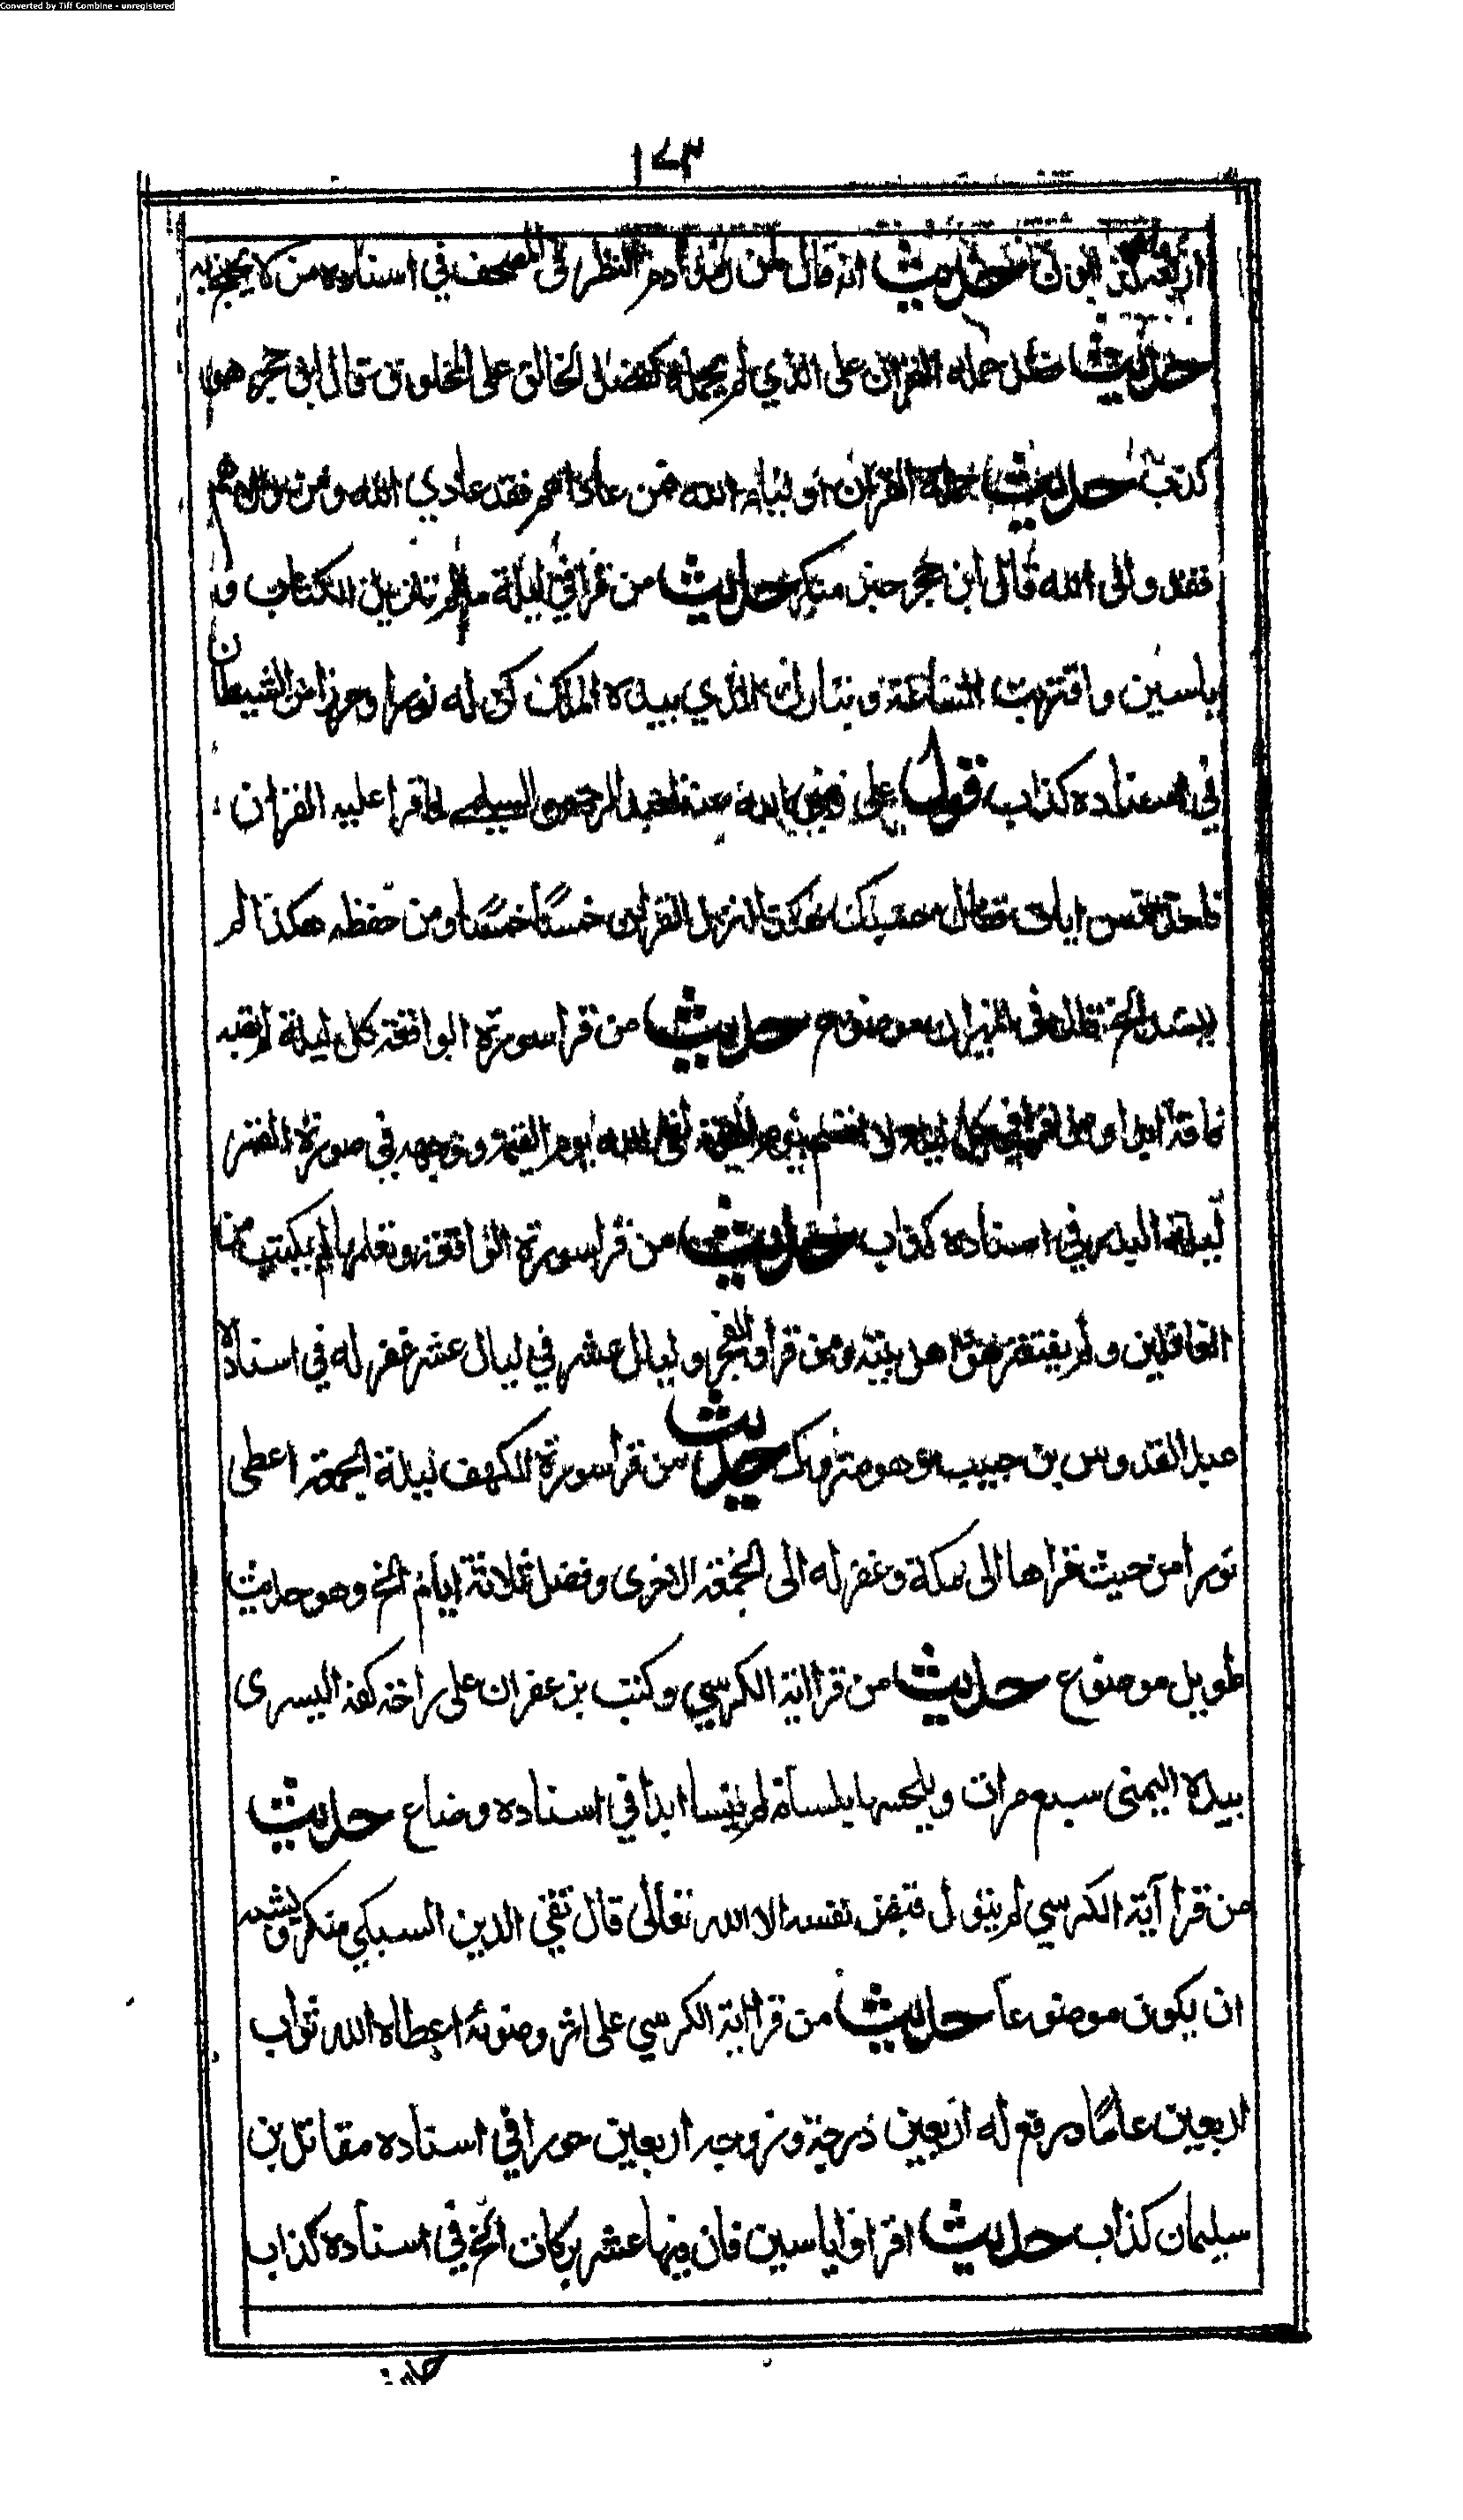 Converted by Tiff Combine - unregistered
١٧٣
حديث انه قال لمن النظر في المصحف في اسناده من لا يحتج به
حديث فضل حملة القران على الذي لم يحمله كفضل الخالق على المخلوق قال ابن حجر هو
كذب حديث حملة القران اولياء الله فمن عاداهم فقد عادي الله ومن والاهم
فقد والى الله قال ابن حجر خبر منكر حديث من قرا في ليلة الم تنزيل الكتاب و
ياسين واقتربت الساعة وتبارك الذي بيده الملك كن له نورا وحرزا من الشيطان
في اسناده كذاب قول علي رضي الله عنه لعبد الرحمن السلمي لما قرا عليه القران
فاخذ خمس ايات فقال حسبك هكذا نزل القران خمسًا خمسًا ومن حفظه هكذا لم
ينسه الخ قال في الميزان موضوع حديث من قرا سورة الواقعة كل ليلة لم تصبه
فاقة ابدا ومن قرا في كل ليلة لا اقسم بيوم القيمة لقى الله يوم القيمة ووجهه في صورة القمر
ليلة البدر في اسناده كذاب حديث من قرا سورة الواقعة وتعلمها لم يكتب من
الغافلين ولم يفتقر هو واهل بيته ومن قرا والفجر وليال عشر في ليال عشر غفر له في اسناده
عبد القدوس بن حبيب وهو متروك حديث من قرا سورة الكهف ليلة الجمعة اعطى
نورا من حيث قراها الى مكة وغفر له الى الجمعة الاخرى وفضل ثلاثة ايام الخ وهو حديث
طويل موضوع حديث من قرا اية الكرسي وكتب بزعفران على راحته كفه اليسرى
بيده اليمنى سبع مرات ويلحسها بلسانه لم ينسا ابدا في اسناده وضاع حديث
من قرا آية الكرسي لم يتول قبض نفسه الا الله تعالى قال تقي الدين السبكي منكر ويشبه
ان يكون موضوعا حديث من قرا اية الكرسي على اثر وضوئه اعطاه الله ثواب
اربعين عامًا ورفع له اربعين درجة وزوجه اربعين حورا في اسناده مقاتل بن
سليمان كذاب حديث اقراوا ياسين فان فيها عشر بركات الخ في اسناده كذاب